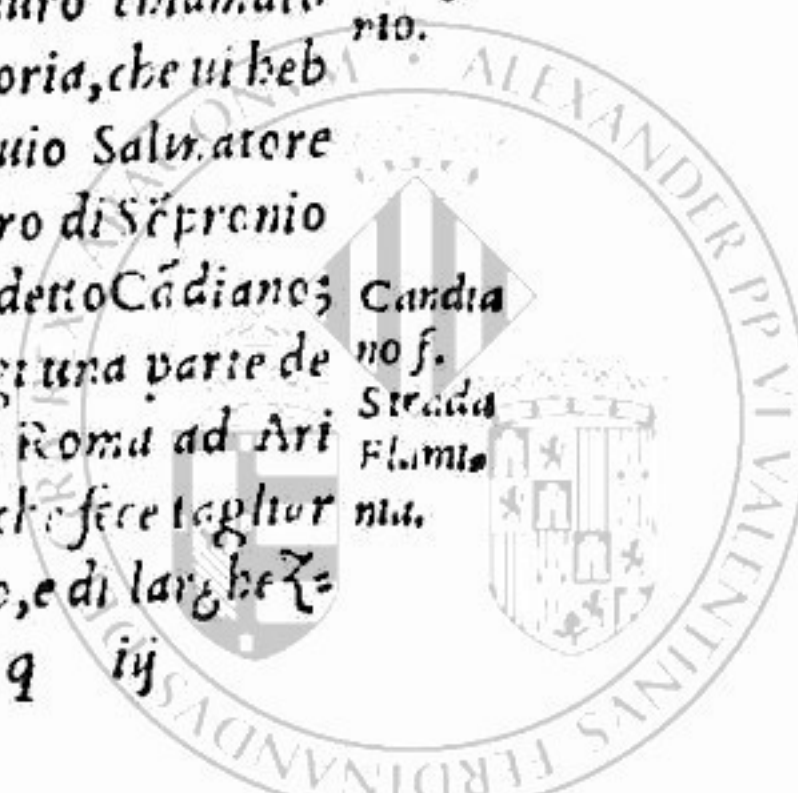 rio.
oria, che ui heb
uio Saluatore
ro di Sēpronio
detto Cādiano;
una parte de
Roma ad Ari
fece tagliar
o, e di larghez=
q iij
Candia
no f.
Strada
Flami=
nia.
ALEXANDER PP VI VALENTINVS FERDINANDVS